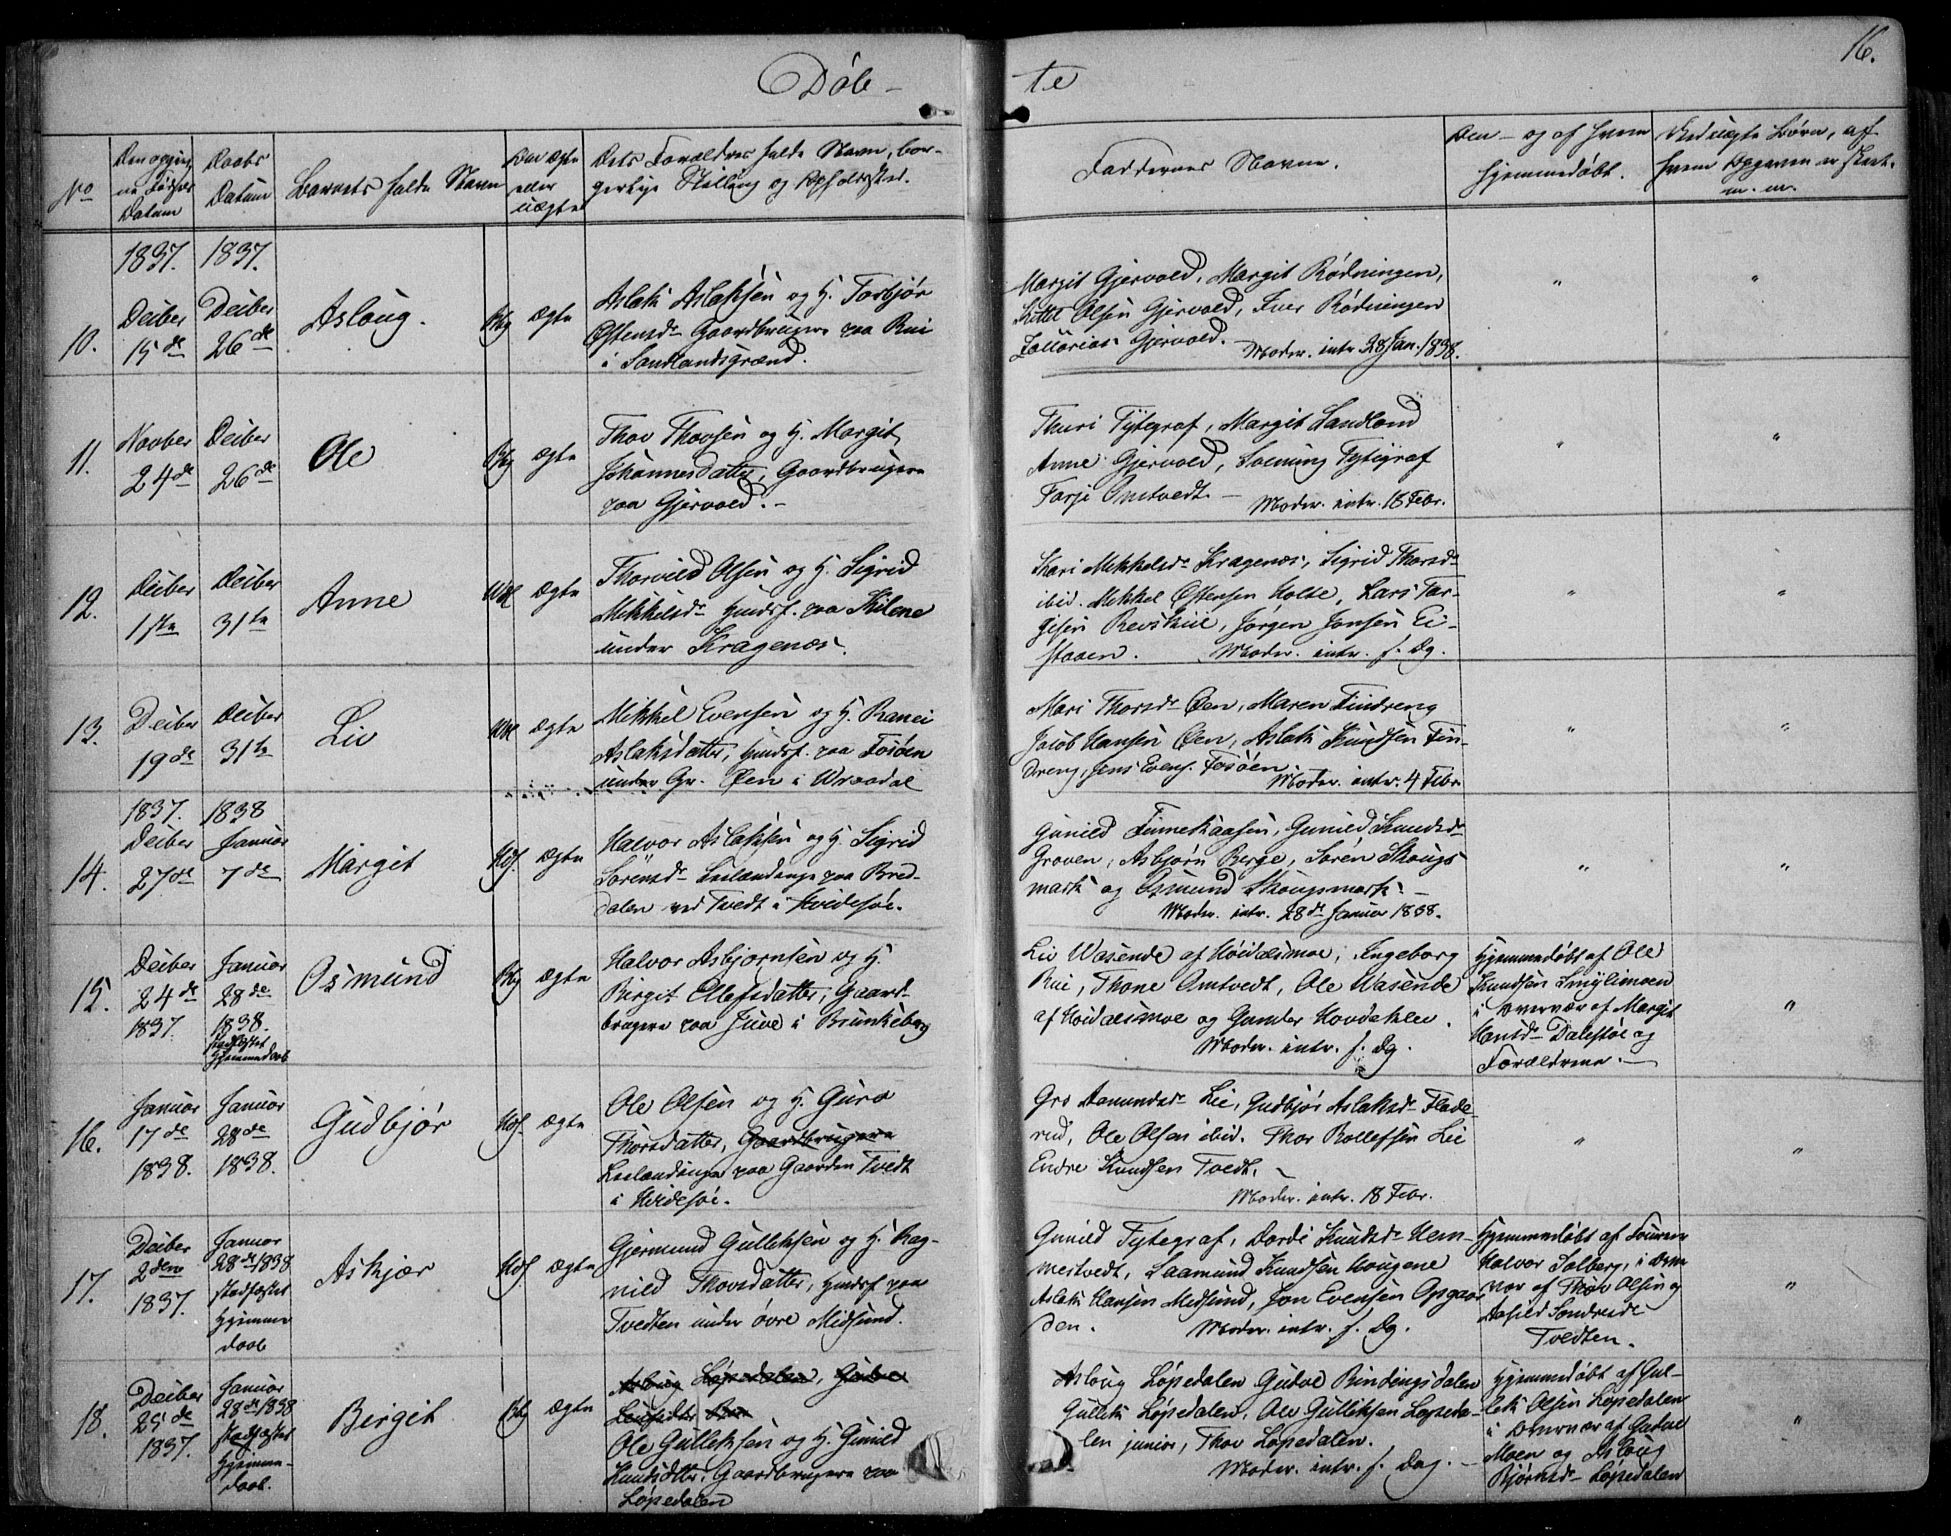 Døb-
te
16.
No
Den opgivne Fødsels Datum
Daabs Datum
Barnets fulde Navn
Om ægte eller uægte
Dets Forældres fulde Navn, borgerlige Stilling og Opholdssted.
Faddernes Navne.
Om – og af hvem hjemmedøbt.
Ved uægte Børn, af hvem Opgaven er skeet. m. m.
1837. 1837.
10.
Deiber 15de
Deiber 26de
Asloug.
Bbg
ægte
Aslak Aslaksen og H. Torbjør
Østensdr. Gaardbrugere paa Rui
i Sandlandsgrænd.
Margit Gjervold, Margit Rødningen,
Kittel Olsen Gjervold, Iver Rødningen
Zacarias Gjervold.
Moder. intr. 28 Jan. 1838.
"
"
11.
Novber 24de
Deiber 26de
Ole
Bbg
ægte
Thov Thovsen og H. Margit
Johannesdatter, Gaardbrugere
paa Gjervold. -
Thuri Tytegraf, Margit Sandland
Anne Gjervold, Sveinung Tytegraf
Tarje Omtvedt. -
Moder. intr. 18 Febr.
"
"
12.
Deiber 1ste
Deiber 31te
Anne
Wdl
ægte
Thorvild Olsen og H. Sigrid
Mikkelsdr. Huusf. paa Kilene
under Kragenæs.
Kari Mikkelsdr. Kragenæs, Sigrid Thorsdr.
ibid. Mikkel Østensen Holte, Lars Tar-
gesen Revskiil, Jørgen Jonsen Ei-
staaen.
Moder. intr. s. Dg.
"
"
13.
Deiber 19de
Deiber 31te
Liv
Wdl
ægte
Mikkel Evensen og H. Ranei
Aslaksdatter, Huusf. paa Fosøen
under Gr. Øen i Wraadal
Mari Thorsdr. Øen, Maren Tindreng
Jacob Hansen Øen, Aslak Knudsen Tin-
dreng, Jens Evens. Fosøen.
Moder. intr. 4 Febr.
"
"
1837. 1838
14.
Deiber 27de
Januar 7de
Margit
Hdf.
ægte
Halvor Aslaksen og H. Sigrid
Sørensdr. Leilændinge paa Bred-
dalen ved Tvedt i Hvideseie.
Gunild Finnekaasen, Gunild Knudsdr.
Groven, Asbjørn Berge, Søren Skougs-
mark og Osmund Skougsmark. -
Moder. intr. 28de Januar 1838.
"
"
15.
Deiber 24de 1837.
Januar 28de 1838. stadfæstet Hjemmedaab
Osmund
Bbg
ægte
Halvor Asbjørnsen og H.
Birgit Ellefsdatter, Gaard-
brugere paa Juve i Brunkeberg
Liv Wasende af Høidalsmoe, Ingeborg
Rui, Thone Omtvedt, Ole Wasende
af Høidalsmoe og Gunder Hovdeklev.
Moder. intr. s. Dg.
Hjemmedøbt af Ole
Knudsen
i Overvær af Margit
Dalestøe og
Forældrene. -
"
16.
Januar 17de 1838.
Januar 28de 1838.
Gudbjør
Hdf.
ægte
Ole Olsen og H. Guro
Thorsdatter, Gaardbrugere
Leilændinge paa Gaarden Tvedt
i Hvideseie.
Gro Aamundsdr. Lie, Gudbjør Aslaksdr. Flade-
rud, Ole Olsen ibid. Thor Rollefsen Lie
Endre Knudsen Tvedt. -
Moder. intr. 18 Febr.
"
"
17.
Deiber 2den 1837.
Januar 28de 1838 stadfæstet Hjemme daab
Askjær
Hdf
ægte
Gjermund Gulleksen og H. Rag-
nild Thovsdatter, Huusf. paa
Tvedten under øvre Midsund.
Gunild Tytegraf, Dordi Knudsdr. Hem-
mestvedt, Saamund Knudsen Hougene
Aslak Hansen Midsund, Jon Evensen Opgaar-
den.
Moder. intr. s. Dg.
Hjemmedøbt af
Halvor Solberg, i Over-
vær af Thov Olsen og
Aasild Sondresdr.
Tvedten.
"
18.
Deiber 25de 1837.
Januar 28de 1838 stadfæstet Hjemme-daab.
Bergit
Bbg
ægte
Asloug Løpedalen,
Ole Gulleksen og H. Gunild
Knudsdtter. Gaardbrugere paa
Løpedalen
Asloug Løpedalen Gudve Bindingsdalen
Gullek Løpedalen, Ole Gulleksen Løpeda-
len junior, Thov Løpedalen.
Moder. intr. s. Dag. -
Hjemmedøbt af Gul-
lek Olsen Løpedalen
i Overvær af Gudve
Moen og Asloug
Bjørnsdr. Løpedalen
"